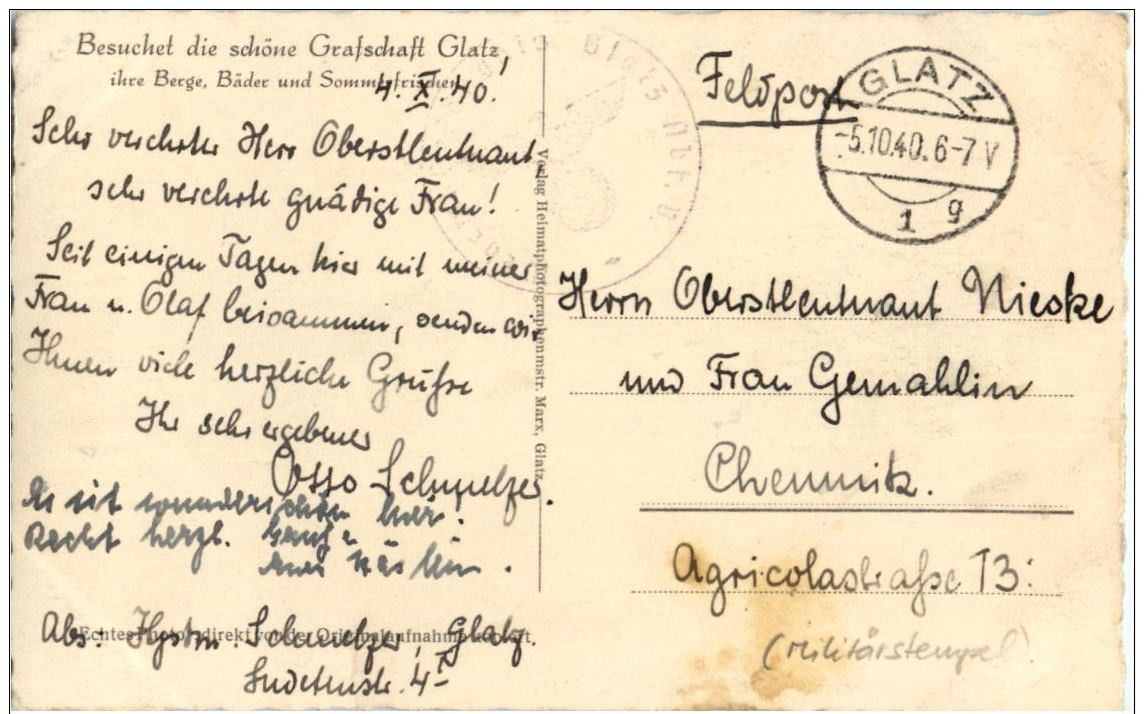 Besuchet die schöne Grafschaft Glatz,
ihre Berge, Bäder und Sommerfrischen
4. X. 40.
Sehr verehrter Herr Oberstleutnant,
sehr verehrte gnädige Frau!
Seit einigen Tagen hier mit meiner
Frau u. Olaf beisammen, senden wir
Ihnen viele herzliche Grüße
Ihr sehr ergebener
Otto Schmelzer.
Es ist wunderschön hier!
Recht herzl.
Abs: Hptm. Schmelzer, Glatz
Sudetenstr. 4
Echtes Photo, direkt von der Originalaufnahme kopiert.
Verlag Heimatphotographenmstr. Marx, Glatz
Glatz Abt. B.
Feldpost
GLATZ
-5.10.40.6-7V
1 g
Herrn Oberstleutnant Nieske
und Frau Gemahlin
Chemnitz.
Agricolastraße 13:
(Militärstempel)